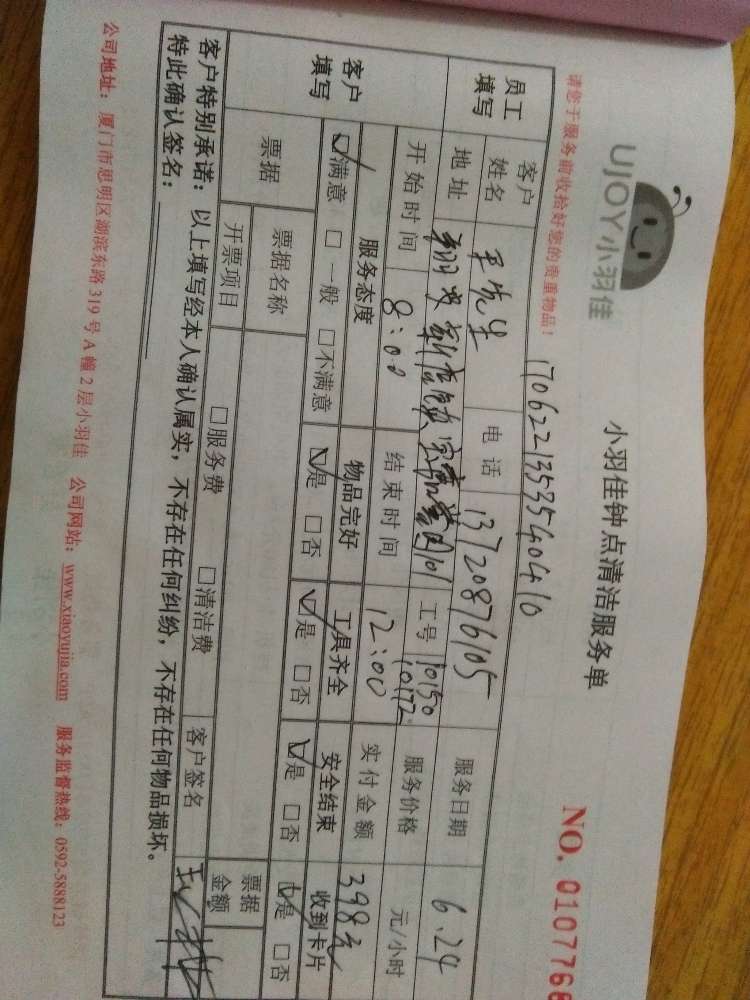 UJOY小羽佳
小羽佳钟点清洁服务单
NO. 0107766
请您于服务前收拾好您的贵重物品！
170622135354040410
员工填写
客户姓名 王先生 电话 13720876105 服务日期 6.24
地址 翔安新店镇 101 工号 10150 10172 服务价格 元/小时
开始时间 8:00 结束时间 12:00 实付金额 398元
客户填写
服务态度 物品完好 工具齐全 安全结束 收到卡片
☑满意 □一般 □不满意 ☑是 □否 ☑是 □否 ☑是 □否 ☑是 □否
票据 票据名称 票据金额
开票项目 □服务费 □清洁费 客户签名
客户特别承诺：以上填写经本人确认属实，不存在任何纠纷，不存在任何物品损坏。
特此确认签名：
公司地址：厦门市思明区湖滨东路319号A幢2层小羽佳 公司网站：www.xiaoyujia.com 服务监督热线：0592-5888123